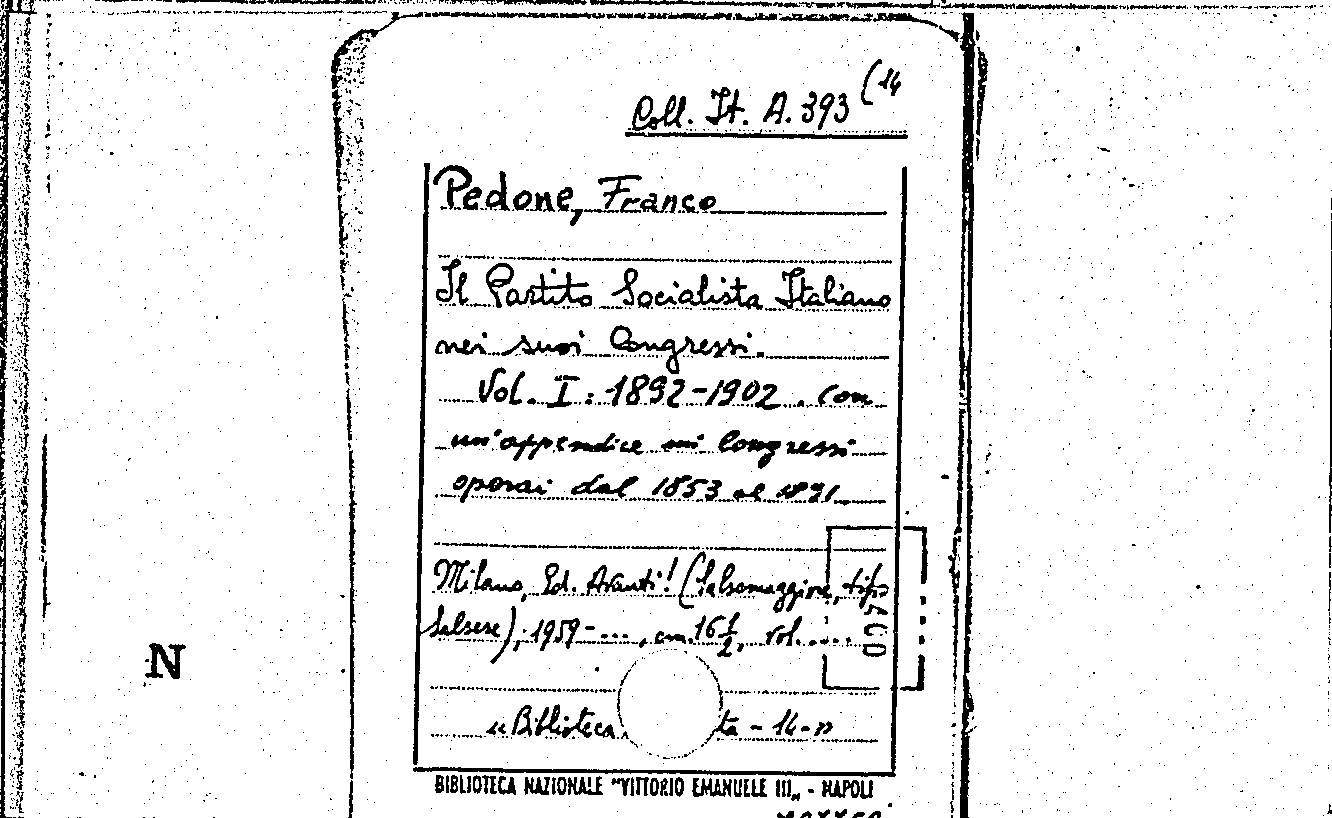 Coll. It. A. 393 (14
Pedone, Franco
Il Partito Socialista Italiano
nei suoi Congressi.
Vol. I: 1892-1902. Con
un'appendice sui Congressi
operai dal 1853 al 1891
Milano, Ed. Avanti! (Salsomaggiore, tip.
Salsese), 1959-..., cm. 16 1/2, vol. ....
ACD
N
«Biblioteca ta - 14-»
BIBLIOTECA NAZIONALE "VITTORIO EMANUELE III„ - NAPOLI